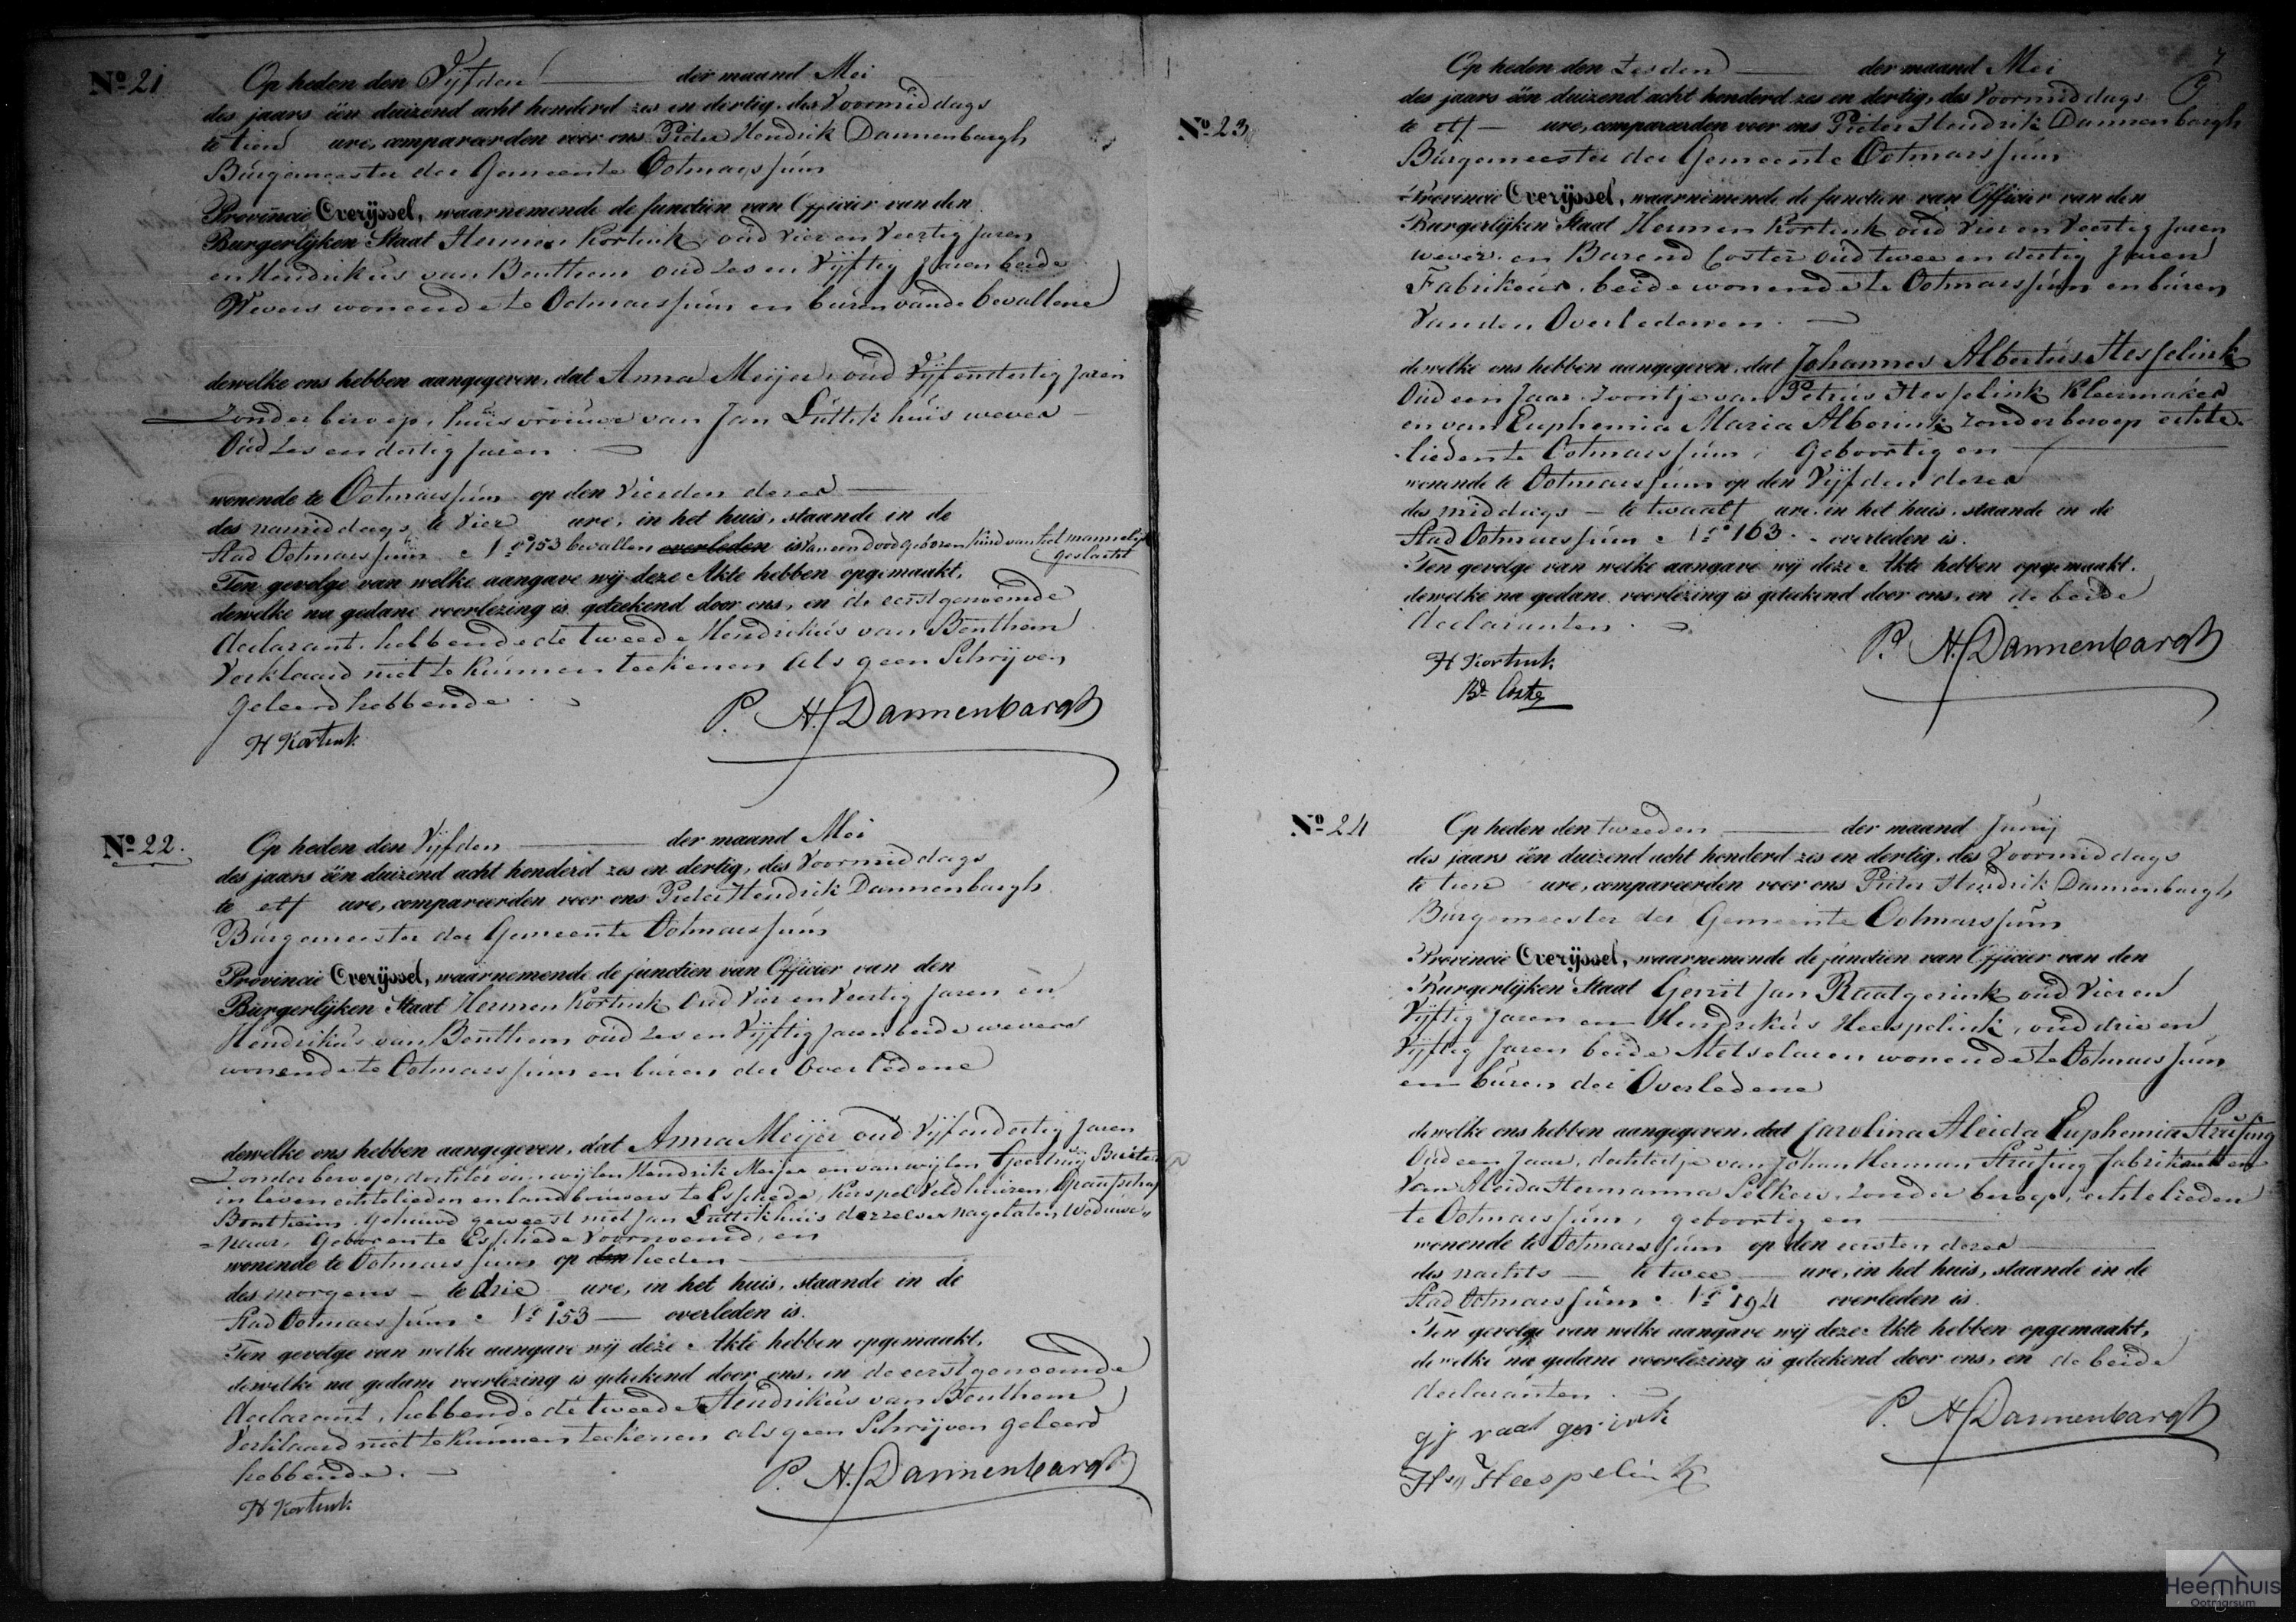 No. 21
Op heden den Vijfden der maand Mei
des jaars één duizend acht honderd zes en dertig, des Voormiddags
te tien ure, compareerden voor ons Pieter Hendrik Dannenbargh
Burgemeester der Gemeente Ootmarssum
Provincie Overijssel, waarnemende de functien van Officier van den
Burgerlijken Staat Hermen Kortink, oud Vier en Veertig Jaren
en Hendrikus van Benthem oud Zes en Vijftig Jaren beide
Wevers wonende te Ootmarssum en buren van de bevallene
dewelke ons hebben aangegeven, dat Anna Meijer, oud Vijf en dertig Jaren
Zonder beroep, huisvrouwe van Jan Luttikhuis wever
Oud Zes en dertig Jaren.
wonende te Ootmarssum op den Vierden dezer
des namiddags te Vier ure, in het huis, staande in de
Stad Ootmarssum No. 153 bevallen overleden is van een dood geboren kind van het mannelijk
geslacht
Ten gevolge van welke aangave wij deze Akte hebben opgemaakt,
dewelke na gedane voorlezing is geteekend door ons, en de eerstgenoemde
declarant, hebbende de tweede Hendrikus van Benthem
Verklaard niet te kunnen teekenen als geen Schrijven
geleerd hebbende.
P. H. Dannenbargh
H Kortink
No. 22.
Op heden den Vijfden der maand Mei
des jaars één duizend acht honderd zes en dertig, des Voormiddags
te elf ure, compareerden voor ons Pieter Hendrik Dannenbargh
Burgemeester der Gemeente Ootmarssum
Provincie Overijssel, waarnemende de functien van Officier van den
Burgerlijken Staat Hermen Kortink Oud Vier en Veertig Jaren en
Hendrikus van Benthem oud Zes en Vijftig Jaren beide wevers
wonende te Ootmarssum en buren der Overledene
dewelke ons hebben aangegeven, dat Anna Meijer oud Vijf en dertig Jaren
Zonder beroep, dochter van wijlen Hendrik Meijer en van wijlen Geertruij
in leven echtelieden en landbouwers te Eschede, Kerspel Veldhuizen, Graafschap
Bentheim. Gehuwd geweest met Jan Luttikhuis derzelver nagelaten Weduwe-
naar, Geboren te Eschede Voornoemd, en
wonende te Ootmarssum op den heden
des morgens te drie ure, in het huis, staande in de
Stad Ootmarssum No. 153 overleden is.
Ten gevolge van welke aangave wij deze Akte hebben opgemaakt,
dewelke na gedane voorlezing is geteekend door ons, en de eerstgenoemde
declarant, hebbende de tweede Hendrikus van Benthem
Verklaard niet te kunnen teekenen als geen Schrijven geleerd
hebbende.
P. H. Dannenbargh
H Kortink
No. 23
Op heden den Zesden der maand Mei
des jaars één duizend acht honderd zes en dertig, des Voormiddags
te elf ure, compareerden voor ons Pieter Hendrik Dannenbargh
Burgemeester der Gemeente Ootmarssum
Provincie Overijssel, waarnemende de functien van Officier van den
Burgerlijken Staat Hermen Kortink oud Vier en Veertig Jaren
wever en Barend Coster oud twee en dertig Jaren
Fabrikeur, beide wonende te Ootmarssum en buren
Van den Overledenen.
dewelke ons hebben aangegeven, dat Johannes Albertus Hesselink
Oud een Jaar Zoontje van Petrus Hesselink Kleermaker
en van Euphemia Maria Alberink Zonder beroep echte
lieden te Ootmarssum, Geboortig en
wonende te Ootmarssum op den Vijfden dezer
des middags te twaalf ure, in het huis, staande in de
Stad Ootmarssum No. 163 overleden is.
Ten gevolge van welke aangave wij deze Akte hebben opgemaakt,
dewelke na gedane voorlezing is geteekend door ons, en de beide
declaranten.
P. H. Dannenbargh
H Kortink
Bd. Coster
No. 24
Op heden den tweeden der maand Junij
des jaars één duizend acht honderd zes en dertig, des Voormiddags
te tien ure, compareerden voor ons Pieter Hendrik Dannenbargh
Burgemeester der Gemeente Ootmarssum
Provincie Overijssel, waarnemende de functien van Officier van den
Burgerlijken Staat Gerrit Jan Raatgerink oud Vier en
Vijftig Jaren en Hendrikus Heespelink, oud drie en
Vijftig Jaren beide Metselaren wonende te Ootmarssum
en buren der Overledene
dewelke ons hebben aangegeven, dat Carolina Aleida Euphemia Strüfing
Oud een Jaar, dochtertje van Johan Herman Strüfing fabrikant en
Van Aleida Hermanna Selker, Zonder beroep, echtelieden
te Ootmarssum, geboortig en
wonende te Ootmarssum op den eersten dezer
des nachts te twee ure, in het huis, staande in de
Stad Ootmarssum No. 194 overleden is.
Ten gevolge van welke aangave wij deze Akte hebben opgemaakt,
dewelke na gedane voorlezing is geteekend door ons, en de beide
declaranten.
P. H. Dannenbargh
gj raat gerink
Hs Heespelink
Heemhuis
Ootmarsum